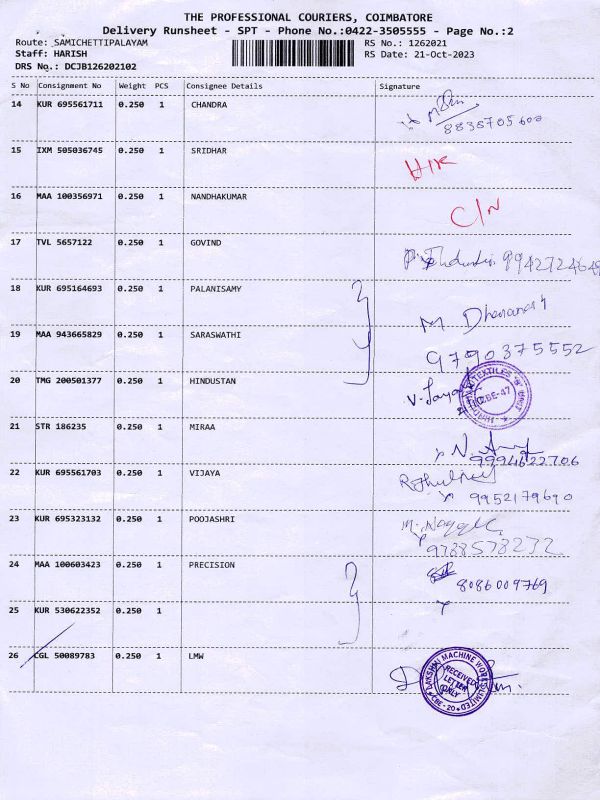 THE PROFESSIONAL COURIERS, COIMBATORE
Delivery Runsheet - SPT - Phone No.:0422-3505555 - Page No.:2
Route: SAMICHETTIPALAYAM
RS No.: 1262021
Staff: HARISH
RS Date: 21-Oct-2023
DRS No.: DCJB126202102
S No Consignment No Weight PCS Consignee Details Signature
14 KUR 695561711 0.250 1 CHANDRA
8838705602
15 IXM 505036745 0.250 1 SRIDHAR
16 MAA 100356971 0.250 1 NANDHAKUMAR C/N
17 TVL 5657122 0.250 1 GOVIND
9942724649
18 KUR 695164693 0.250 1 PALANISAMY
M
19 MAA 943665829 0.250 1 SARASWATHI
9790375552
20 TMG 200501377 0.250 1 HINDUSTAN
21 STR 186235 0.250 1 MIRAA
9994622706
22 KUR 695561703 0.250 1 VIJAYA
9952179690
23 KUR 695323132 0.250 1 POOJASHRI
9788578272
24 MAA 100603423 0.250 1 PRECISION
8086009769
25 KUR 530622352 0.250 1
26 CGL 50089783 0.250 1 LMW
LAKSHMI MACHINE WORKS LIMITED
RECEIVED
LETTER
ONLY
CBE - 20